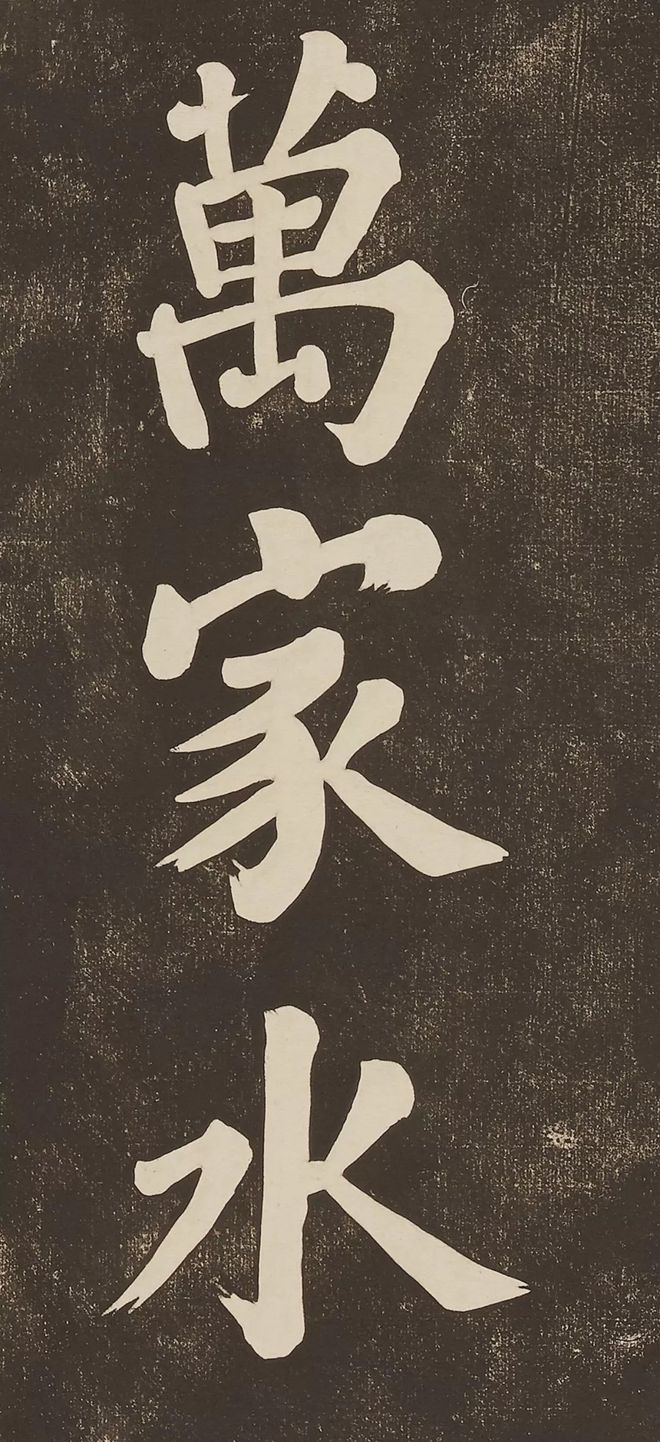 萬家水